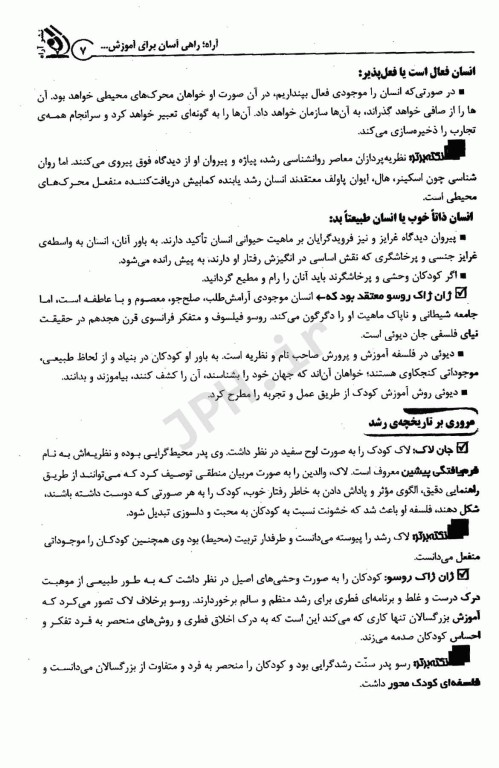 نشر آراه
آراه؛ راهی آسان برای آموزش... ۷
انسان فعال است یا فعل‌پذیر:
■ در صورتی‌که انسان را موجودی فعال بپنداریم، در آن صورت او خواهان محرک‌های محیطی خواهد بود. آن
ها را از صافی خواهد گذراند، به آن‌ها سازمان خواهد داد. آن‌ها را به گونه‌ای تعبیر خواهد کرد و سرانجام همه‌ی
تجارب را ذخیره‌سازی می‌کند.
نکته‌برتر: نظریه‌پردازان معاصر روانشناسی رشد، پیاژه و پیروان او از دیدگاه فوق پیروی می‌کنند. اما روان
شناسی چون اسکینر، هال، ایوان پاولف معتقدند انسان رشد یابنده کمابیش دریافت‌کننده منفعل محرک‌های
محیطی است.
انسان ذاتاً خوب یا انسان طبیعتاً بد:
■ پیروان دیدگاه غرایز و نیز فرویدگرایان بر ماهیت حیوانی انسان تأکید دارند. به باور آنان، انسان به واسطه‌ی
غرایز جنسی و پرخاشگری که نقش اساسی در انگیزش رفتار او دارند، به پیش رانده می‌شود.
■ اگر کودکان وحشی و پرخاشگرند باید آنان را رام و مطیع گردانید.
☑ ژان ژاک روسو معتقد بود که← انسان موجودی آرامش‌طلب، صلح‌جو، معصوم و با عاطفه است، اما
جامعه شیطانی و ناپاک ماهیت او را دگرگون می‌کند. روسو فیلسوف و متفکر فرانسوی قرن هجدهم در حقیقت
نیای فلسفی جان دیوئی است.
■ دیوئی در فلسفه آموزش و پرورش صاحب نام و نظریه است. به باور او کودکان در بنیاد و از لحاظ طبیعی،
موجوداتی کنجکاوی هستند؛ خواهان آن‌اند که جهان خود را بشناسند، آن را کشف کنند، بیاموزند و بدانند.
■ دیوئی روش آموزش کودک از طریق عمل و تجربه را مطرح کرد.
مروری بر تاریخچه‌ی رشد
☑ جان لاک: لاک کودک را به صورت لوح سفید در نظر داشت. وی پدر محیط‌گرایی بوده و نظریه‌اش به نام
فرم‌یافتگی پیشین معروف است. لاک، والدین را به صورت مربیان منطقی توصیف کرد که می‌توانند از طریق
راهنمایی دقیق، الگوی مؤثر و پاداش دادن به خاطر رفتار خوب، کودک را به هر صورتی که دوست داشته باشند،
شکل دهند، فلسفه او باعث شد که خشونت نسبت به کودکان به محبت و دلسوزی تبدیل شود.
نکته‌برتر: لاک رشد را پیوسته می‌دانست و طرفدار تربیت (محیط) بود وی همچنین کودکان را موجوداتی
منفعل می‌دانست.
☑ ژان ژاک روسو: کودکان را به صورت وحشی‌های اصیل در نظر داشت که به طور طبیعی از موهبت
درک درست و غلط و برنامه‌ای فطری برای رشد منظم و سالم برخوردارند. روسو برخلاف لاک تصور می‌کرد که
آموزش بزرگسالان تنها کاری که می‌کند این است که به درک اخلاق فطری و روش‌های منحصر به فرد تفکر و
احساس کودکان صدمه می‌زند.
نکته‌برتر: رسو پدر سنّت رشدگرایی بود و کودکان را منحصر به فرد و متفاوت از بزرگسالان می‌دانست و
فلسفه‌ای کودک محور داشت.
JPH.ir